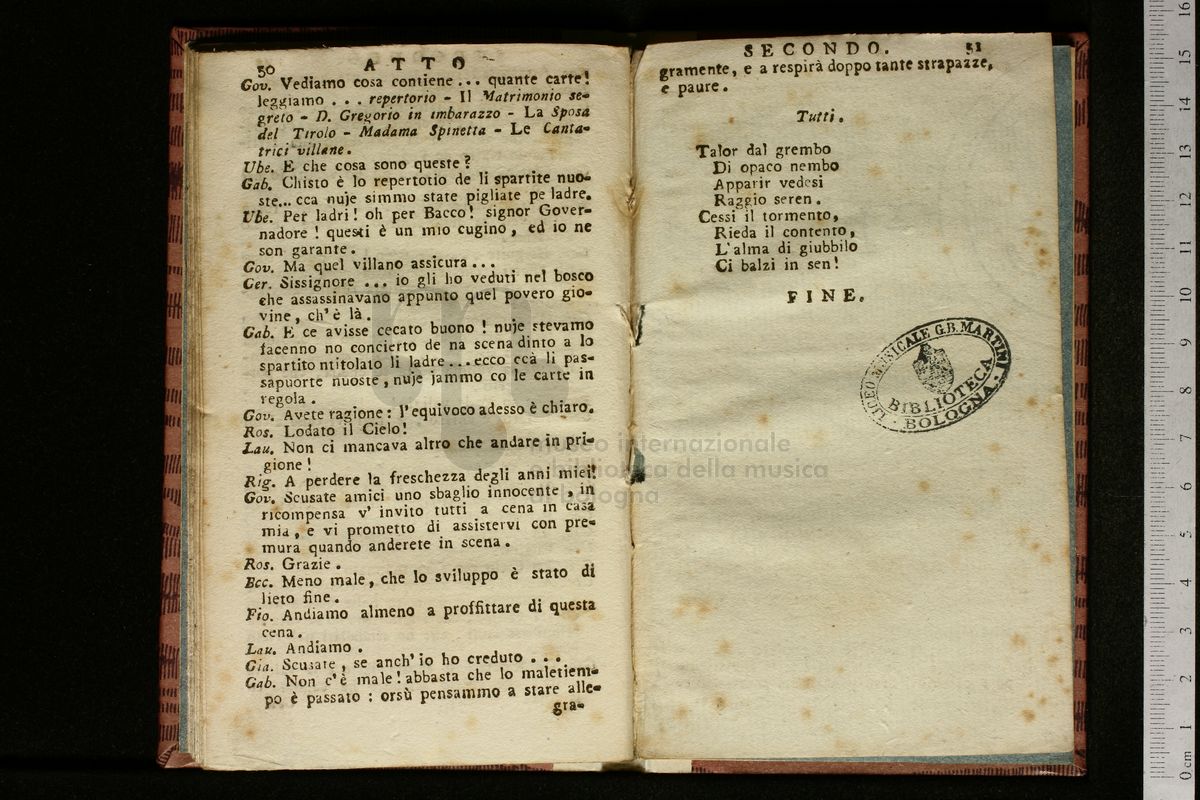 50 ATTO
Gov. Vediamo cosa contiene... quante carte!
leggiamo ... repertorio - Il Matrimonio se-
greto - D. Gregorio in imbarazzo - La Sposa
del Tirolo - Madama Spinetta - Le Canta-
trici villane.
Ube. E che cosa sono queste?
Gab. Chisto è lo repertotio de li spartite nuo-
ste... cca nuje simmo state pigliate pe ladre.
Ube. Per ladri! oh per Bacco! signor Gover-
nadore! questi è un mio cugino, ed io ne
son garante.
Gov. Ma quel villano assicura ...
Cer. Sissignore ... io gli ho veduti nel bosco
che assassinavano appunto quel povero gio-
vine, ch'è là.
Gab. E ce avisse cecato buono! nuje stevamo
facenno no concierto de na scena dinto a lo
spartito ntitolato li ladre...ecco ccà li pas-
sapuorte nuoste, nuje jammo co le carte in
regola.
Gov. Avete ragione: l'equivoco adesso è chiaro.
Ros. Lodato il Cielo!
Lau. Non ci mancava altro che andare in pri-
gione!
Rig. A perdere la freschezza degli anni miei!
Gov. Scusate amici uno sbaglio innocente, in
ricompensa v' invito tutti a cena in casa
mia, e vi prometto di assistervi con pre-
mura quando anderete in scena.
Ros. Grazie.
Bcc. Meno male, che lo sviluppo è stato di
lieto fine.
Fio. Andiamo almeno a proffittare di questa
cena.
Lau. Andiamo.
Gia. Scusate, se anch'io ho creduto ...
Gab. Non c'è male! abbasta che lo maletiem-
po è passato: orsù pensammo a stare alle-
gra-
SECONDO. 51
gramente, e a respirà doppo tante strapazze,
e paure.
Tutti.
Talor dal grembo
Di opaco nembo
Apparir vedesi
Raggio seren.
Cessi il tormento,
Rieda il contento,
L'alma di giubbilo
Ci balzi in sen!
FINE.
LICEO MUSICALE G.B. MARTINI
BIBLIOTECA
BOLOGNA
museo internazionale
e biblioteca della musica
di bologna
0 cm 1 2 3 4 5 6 7 8 9 10 11 12 13 14 15 16